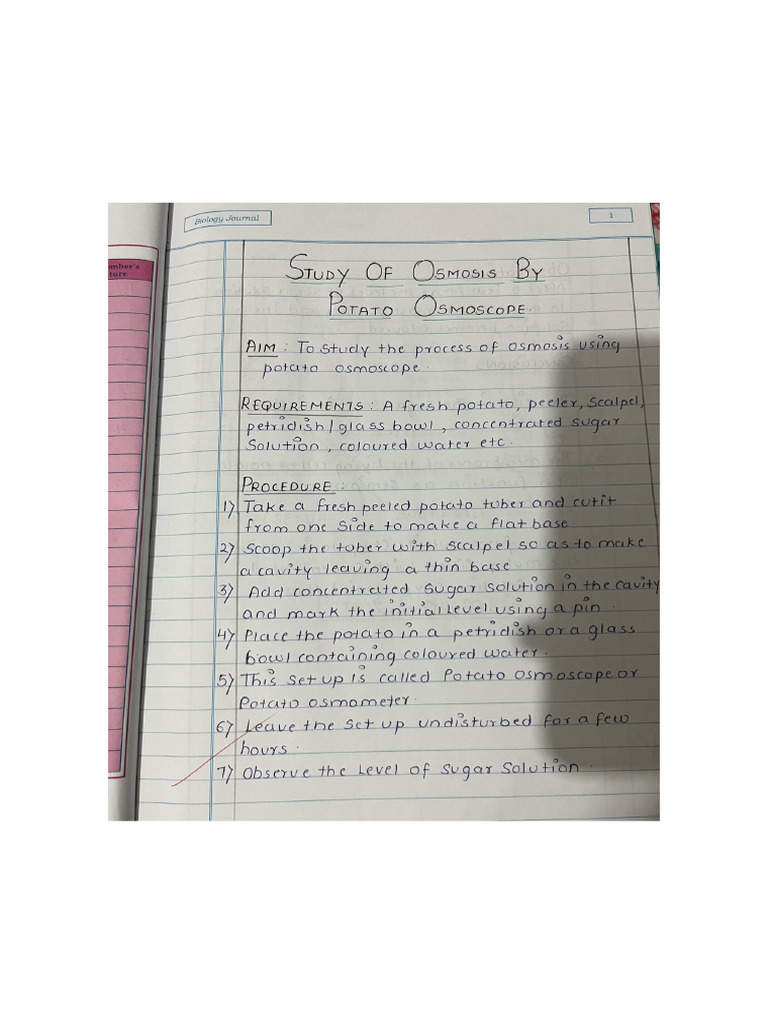 Biology Journal
1
mber's
ture
STUDY OF OSMOSIS BY
POTATO OSMOSCOPE.
AIM : To study the process of osmosis using
potato osmoscope.
REQUIREMENTS : A fresh potato, peeler, scalpel,
petridish/glass bowl, concentrated sugar
solution, coloured water etc.
PROCEDURE :
1) Take a fresh peeled potato tuber and cut it
from one side to make a flat base.
2) Scoop the tuber with scalpel so as to make
a cavity leaving a thin base
3) Add concentrated sugar solution in the cavity
and mark the initial level using a pin.
4) Place the potato in a petridish or a glass
bowl containing coloured water.
5) This set up is called Potato osmoscope or
Potato osmometer.
6) Leave the set up undisturbed for a few
hours.
7) Observe the level of sugar solution.